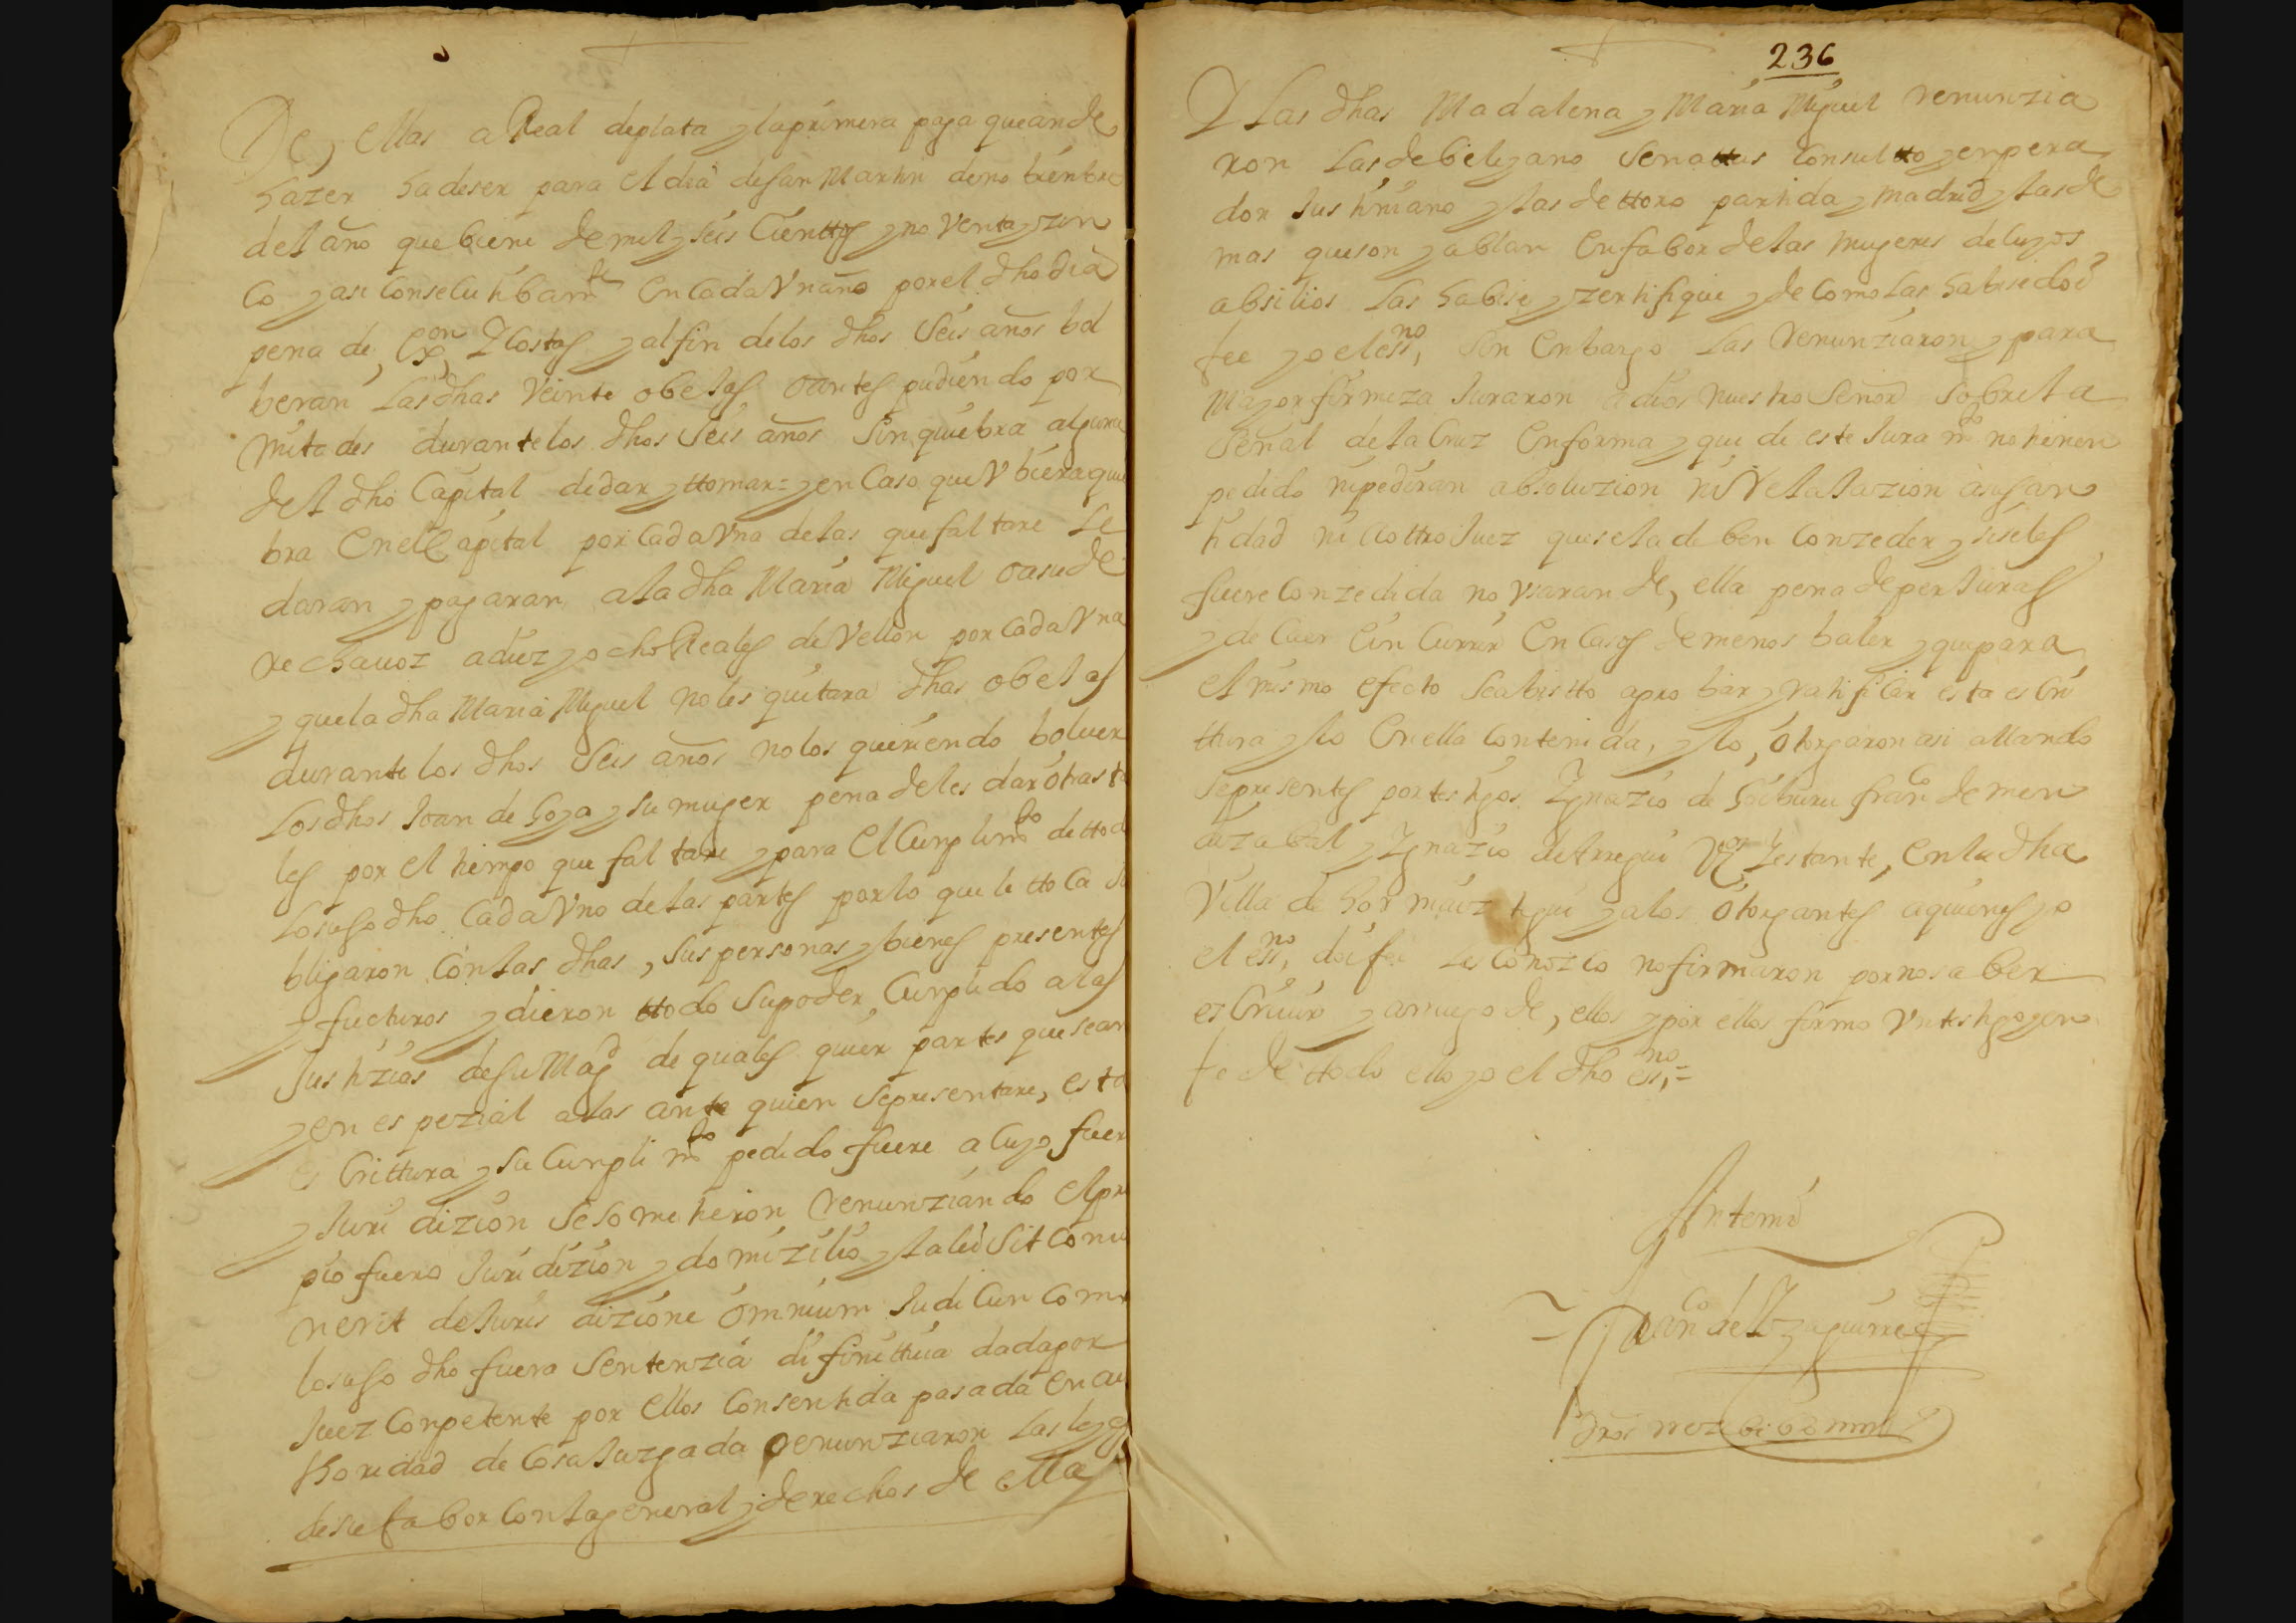 De, ellas a Real deplata y laprimera paga queande
hazer hadeser para eldia desan Martin deno bienbre
delaño que biene de mil y seis Cienttos y no Venta y zin
co y asi Consecutibam^te en Cada Vn año por el dho dia
pena de, ex^on, Y Costas y al fin delos dhos seis años bol
beran las dhas Veinte obejas oantes pudiendo por
mitades durante los dhos seis años sin quiebra alguna
del dho Capital dedar y ttomar = y en Caso que Vbiera quie
bra en el Capital por Cada Vna delas que faltare le
daran y pagaran ala dha Maria Miguel o a su de
rechauoz adiez y ocho Reales de Vellon por Cada Vna
y que la dha Maria Miguel no les quitara dhas obejas
durante los dhos seis años nolos queriendo boluer
los dhos Joan de Goya y su muger pena deles dar otras ta
les por el tiempo que faltare y para el Cunplim^to de ttodo
lo suso dho Cada Vno delas partes por lo que le tto Ca o
bligaron Con las dhas, sus personas y bienes presentes
y fucturos y dieron ttodo su poder Cunplido alas
Justizias de su Mag^d de quales quier partes que sean
y en espezial alas ante quien se presentare, esta
es Crittura y su Cunpli m^to pedido fuere a Cuyo fuero
y Juri dizion se sometieron renunziando el pro
pio fuero Juridizion y domizilio y la lei Sit Conve
nerit de Juris dizione omnium Judi Cun Como
lo suso dho fuera sentenzia difinittiua dada por
Juez Conpetente por ellos Consentida pasada en au
thoridad de Cosa Juzgada renunziaron las leyes
de su fabor Con la general y derechos de ellas
236
Y las dhas Madalena y Maria Miguel renunzia
ron las debelezano senattus Consultto y enpera
dor Justiniano y las de ttoro partida y madrid y las de
mas que son y ablan en fabor de las mugeres de Cuyos
absilios las habise y zertifique y de Como las habise doi
fee yo el ess^no, sin enbargo las renunziaron y para
mayor firmeza Juraron a dios nuestro señor sobre la
señal de la Cruz en forma y que de este Jura m^to no tienen
pedido ni pediran absoluzion ni Relalazion a su san
tidad ni a ottro Juez que se la deben Conzeder y si se les
fuere Conzedida no vsaran de, ella pena de perJuras
y de Caer e in Currir en Casos de menos baler y que para
el mismo efecto sea bistto apro bar y ratificar esta es Cri
ttura y lo en ella Contenida, y lo, otorgaron asi allando
se presentes por testigos Ygnazio de Goiburu fran^co de men
dizabal y Ygnazio de Arregui Vz^os Y estante, en la dha
Villa de hormaiztegui y alos otorgantes a quienes yo
el ess^no, doi fee les Conozco no firmaron por no saber
es Criuir y a rruego de, ellos y por ellos firmo Vn testigo y en
fe de ttodo ello yo el dho ess^no, =
Ante mi